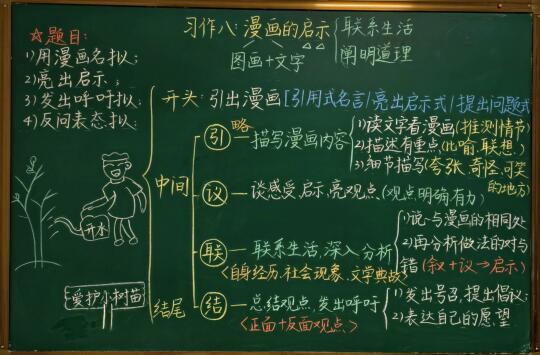 习作八：漫画的启示
图画+文字
联系生活
阐明道理
☆题目：
1)用漫画名拟；
2)亮出启示；
3)发出呼吁拟；
4)反问表态拟；
开头：引出漫画[引用式名言/亮出启示式/提出问题式
中间
引 略 描写漫画内容
1)读文字看漫画(推测情节)
2)描述有重点(比喻、联想)
3)细节描写(夸张、奇怪、可笑
的地方)
议 谈感受、启示、亮观点(观点明确有力)
联 联系生活，深入分析
<自身经历、社会现象、文学典故>
1)说一与漫画的相同处
2)再分析做法的对与
错(叙+议→启示)
结尾
结 总结观点，发出呼吁
<正面+反面观点>
1)发出号召，提出倡议；
2)表达自己的愿望
开水
爱护小树苗